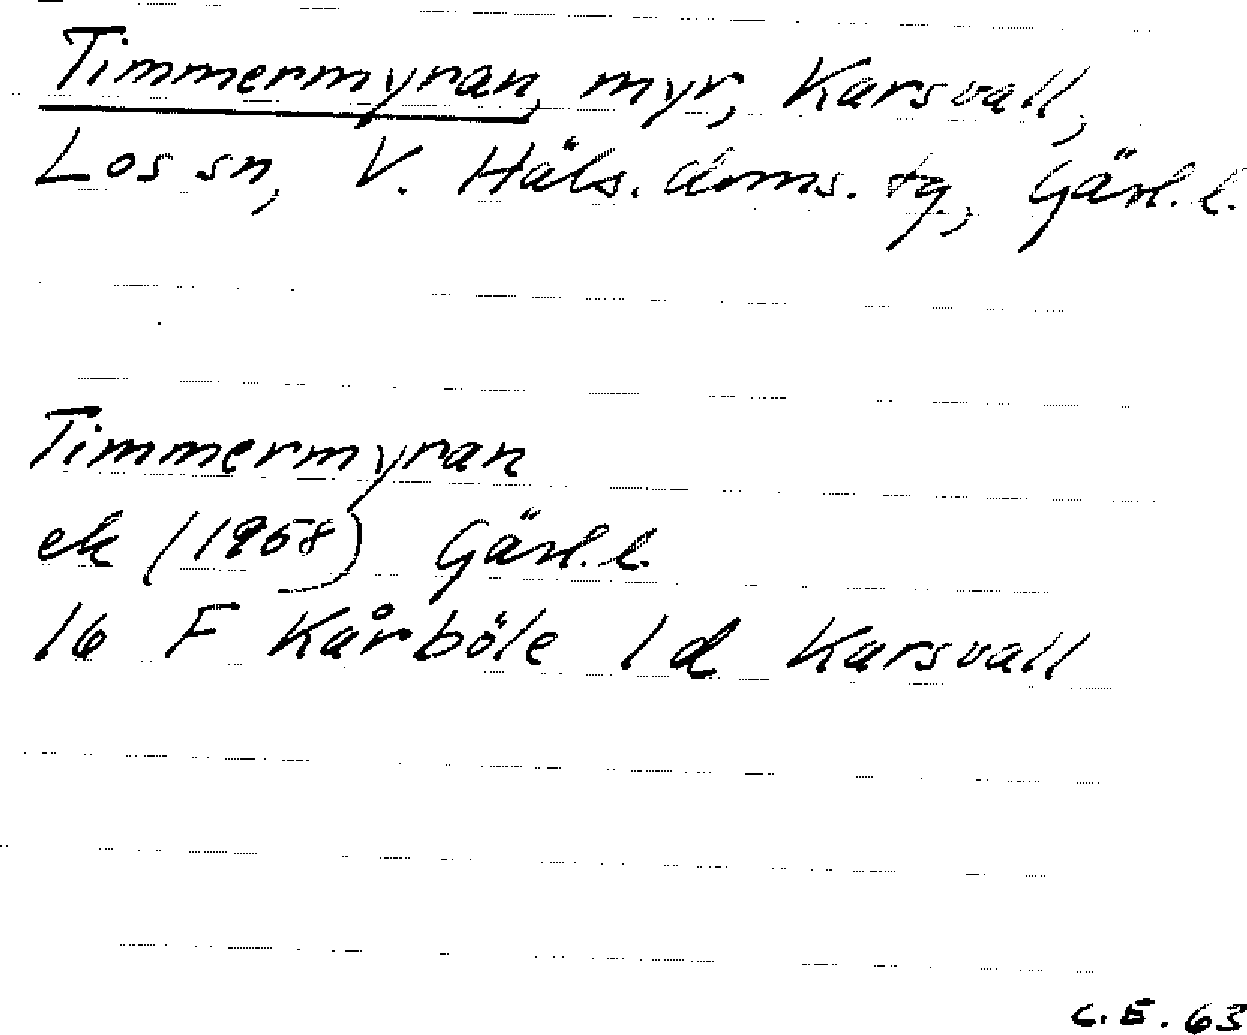 Timmermyran, myr, Karsvall,
Los sn, V. Häls. doms. tg., Gävl. l.
Timmermyran
ek (1958) Gävl. l.
16 F Kårböle 1 d Karsvall
C. E. 63